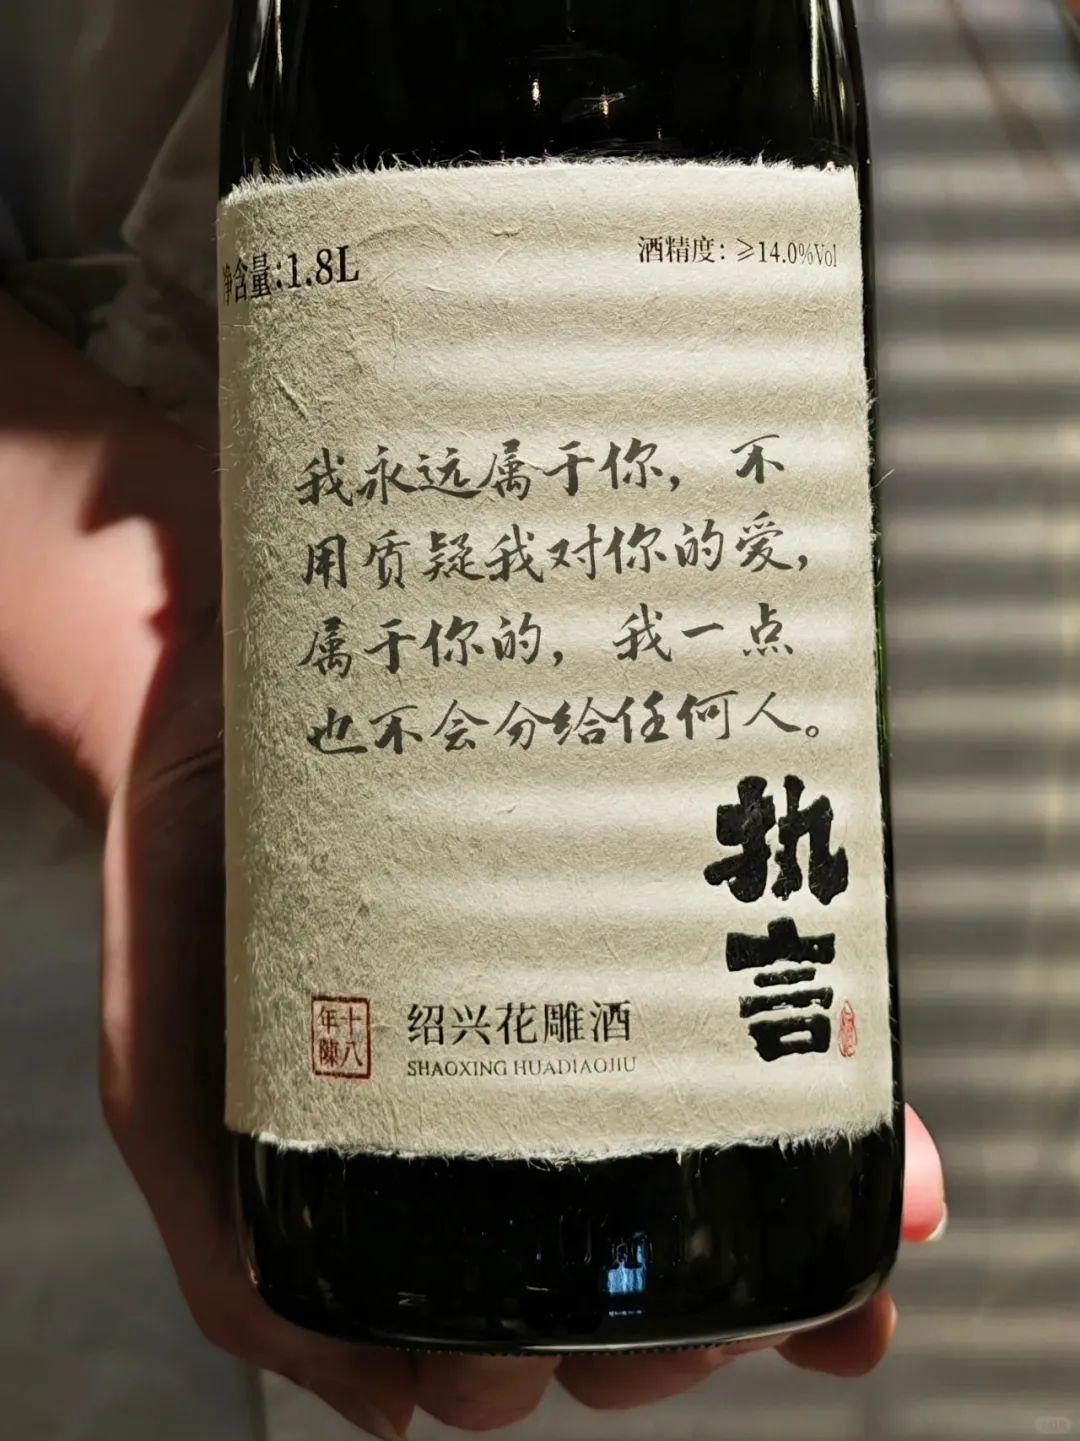 净含量:1.8L
酒精度:≥14.0%Vol
我永远属于你，不
用质疑我对你的爱，
属于你的，我一点
也不会分给任何人。
执言
十八
年陳
绍兴花雕酒
SHAOXING HUADIAOJIU